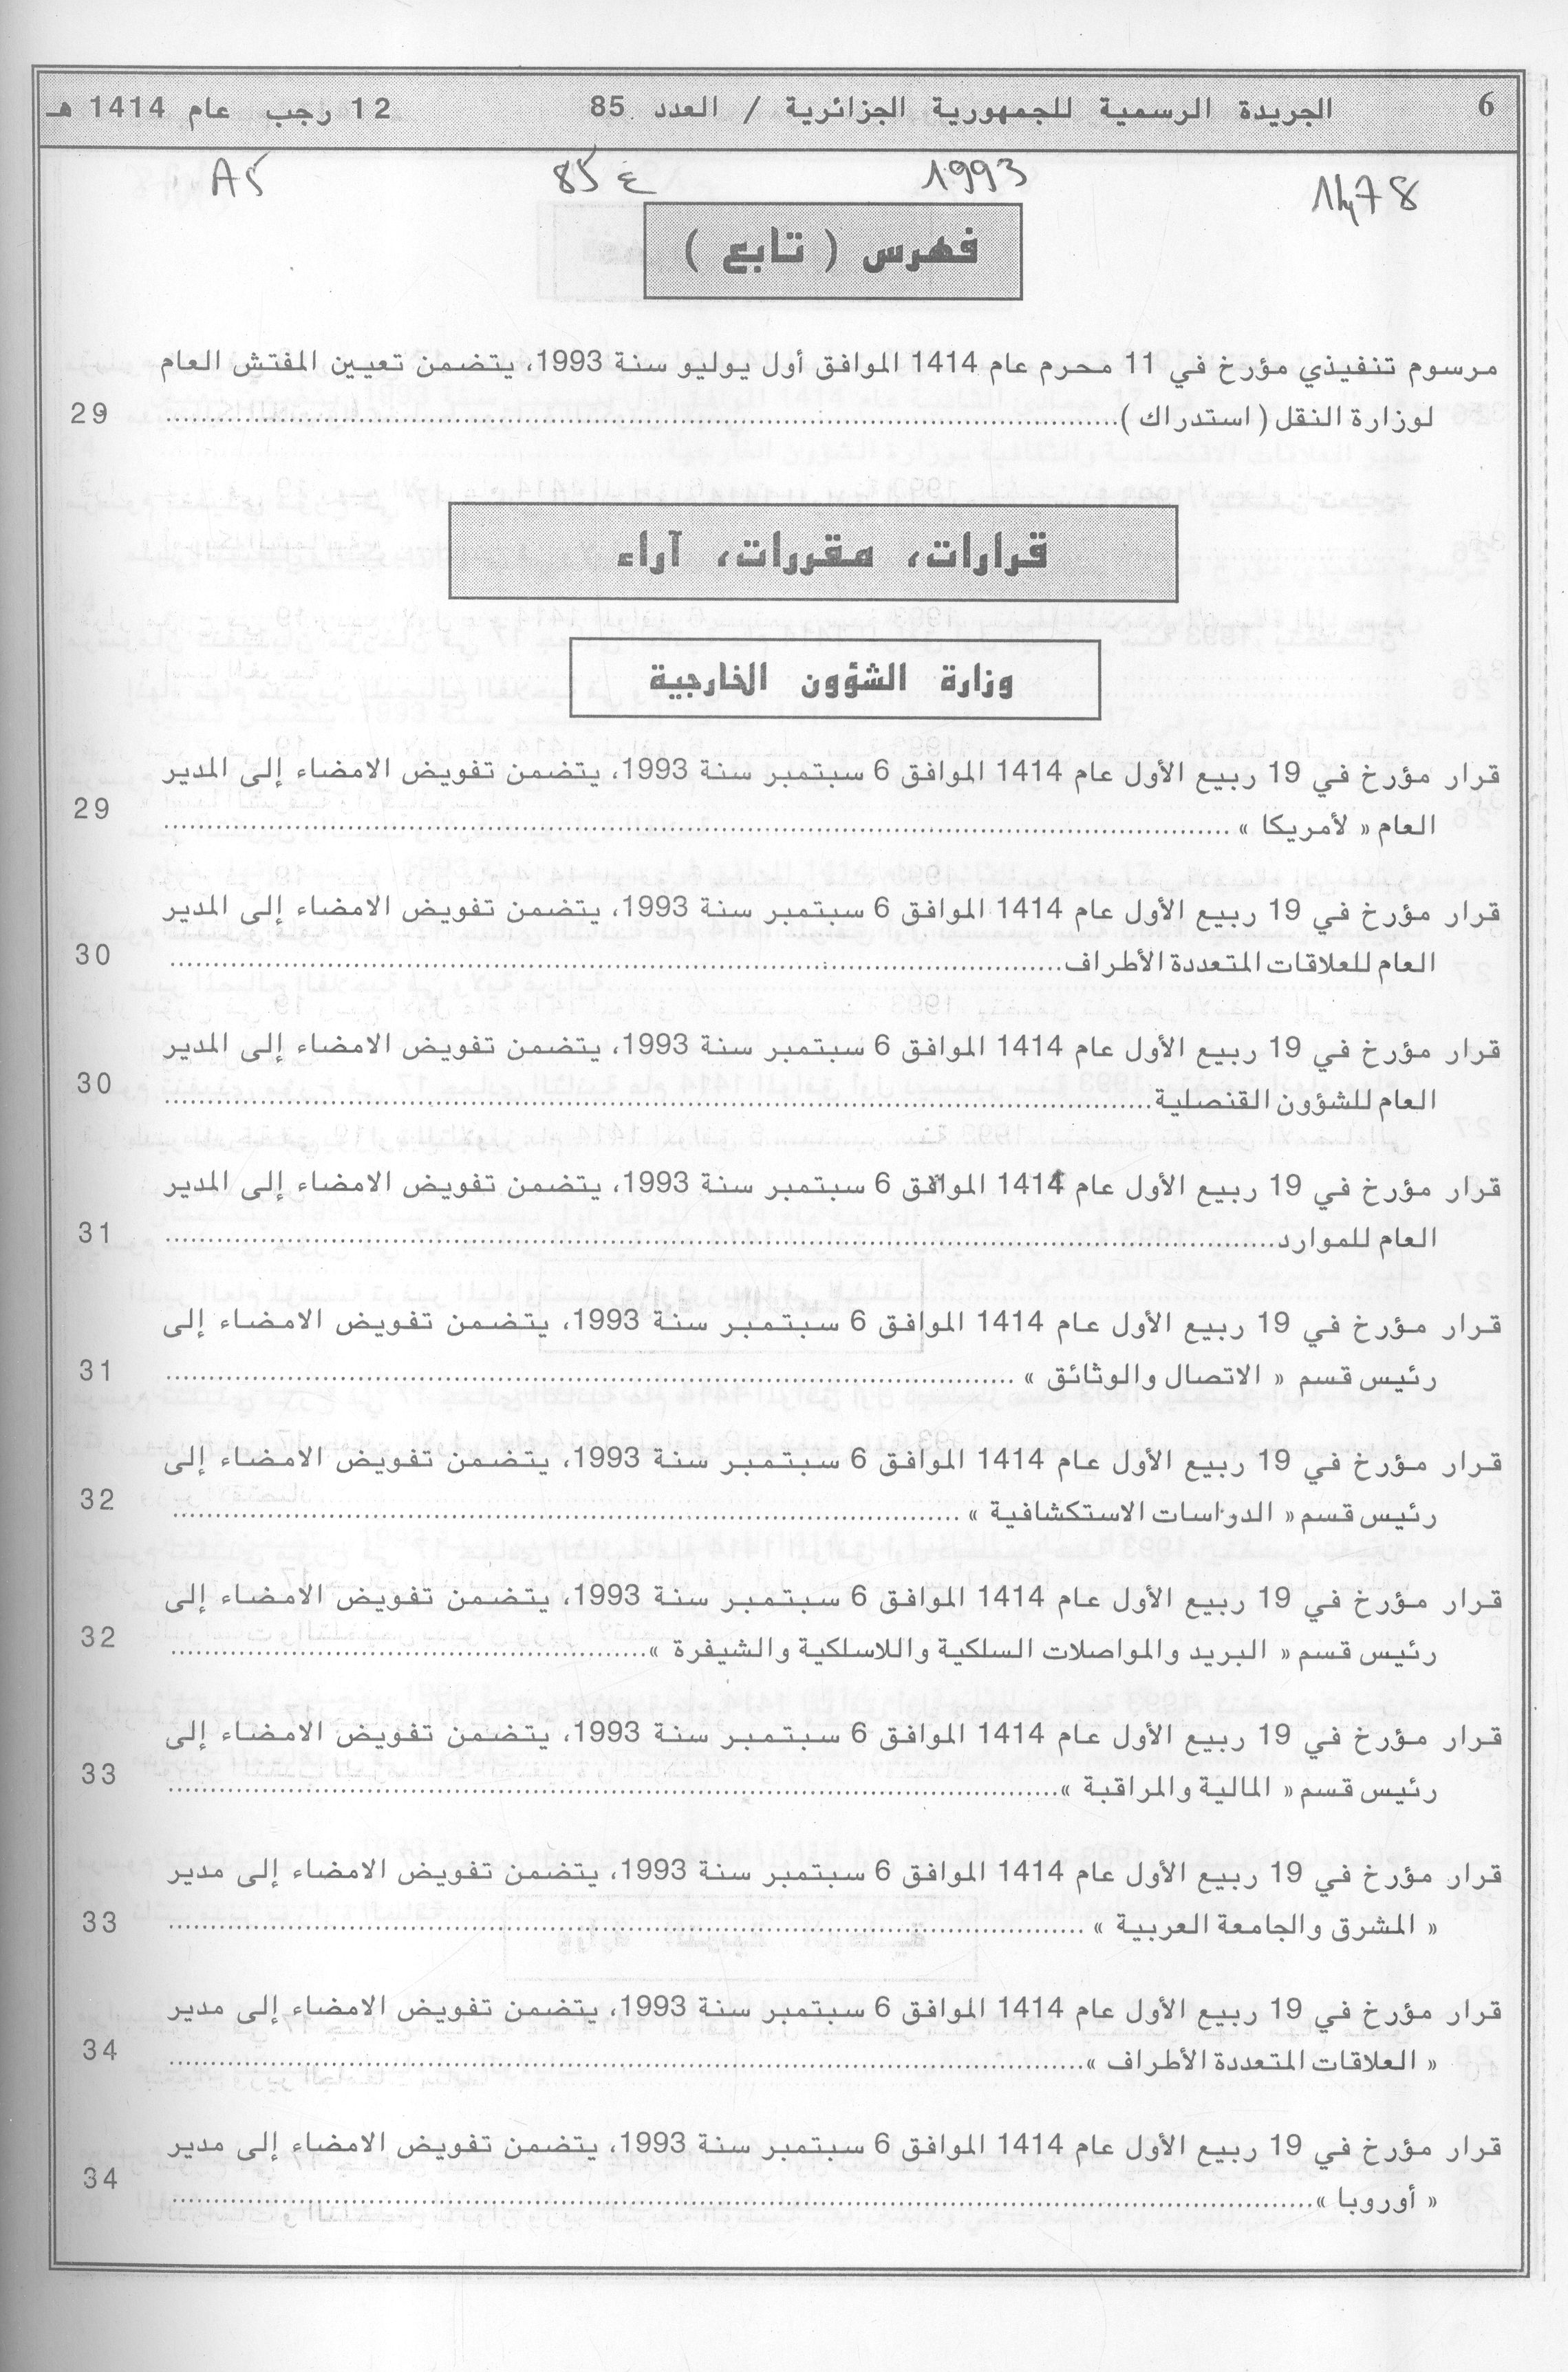 6 الجريدة الرسمية للجمهورية الجزائرية / العدد 85 12 رجب عام 1414 هـ
1478 1993 85 ع A5
فهرس ( تابع )
مرسوم تنفيذي مؤرخ في 11 محرم عام 1414 الموافق أول يوليو سنة 1993، يتضمن تعيين المفتش العام
لوزارة النقل ( استدراك )........................ 29
قرارات، مقررات، آراء
وزارة الشؤون الخارجية
قرار مؤرخ في 19 ربيع الأول عام 1414 الموافق 6 سبتمبر سنة 1993، يتضمن تفويض الامضاء إلى المدير
العام « لأمريكا »........................ 29
قرار مؤرخ في 19 ربيع الأول عام 1414 الموافق 6 سبتمبر سنة 1993، يتضمن تفويض الامضاء إلى المدير
العام للعلاقات المتعددة الأطراف........................ 30
قرار مؤرخ في 19 ربيع الأول عام 1414 الموافق 6 سبتمبر سنة 1993، يتضمن تفويض الامضاء إلى المدير
العام للشؤون القنصلية........................ 30
قرار مؤرخ في 19 ربيع الأول عام 1414 الموافق 6 سبتمبر سنة 1993، يتضمن تفويض الامضاء إلى المدير
العام للموارد........................ 31
قرار مؤرخ في 19 ربيع الأول عام 1414 الموافق 6 سبتمبر سنة 1993، يتضمن تفويض الامضاء إلى
رئيس قسم « الاتصال والوثائق »........................ 31
قرار مؤرخ في 19 ربيع الأول عام 1414 الموافق 6 سبتمبر سنة 1993، يتضمن تفويض الامضاء إلى
رئيس قسم « الدراسات الاستكشافية »........................ 32
قرار مؤرخ في 19 ربيع الأول عام 1414 الموافق 6 سبتمبر سنة 1993، يتضمن تفويض الامضاء إلى
رئيس قسم « البريد والمواصلات السلكية واللاسلكية والشيفرة »........................ 32
قرار مؤرخ في 19 ربيع الأول عام 1414 الموافق 6 سبتمبر سنة 1993، يتضمن تفويض الامضاء إلى
رئيس قسم « المالية والمراقبة »........................ 33
قرار مؤرخ في 19 ربيع الأول عام 1414 الموافق 6 سبتمبر سنة 1993، يتضمن تفويض الامضاء إلى مدير
« المشرق والجامعة العربية »........................ 33
قرار مؤرخ في 19 ربيع الأول عام 1414 الموافق 6 سبتمبر سنة 1993، يتضمن تفويض الامضاء إلى مدير
« العلاقات المتعددة الأطراف »........................ 34
قرار مؤرخ في 19 ربيع الأول عام 1414 الموافق 6 سبتمبر سنة 1993، يتضمن تفويض الامضاء إلى مدير
« أوروبا »........................ 34